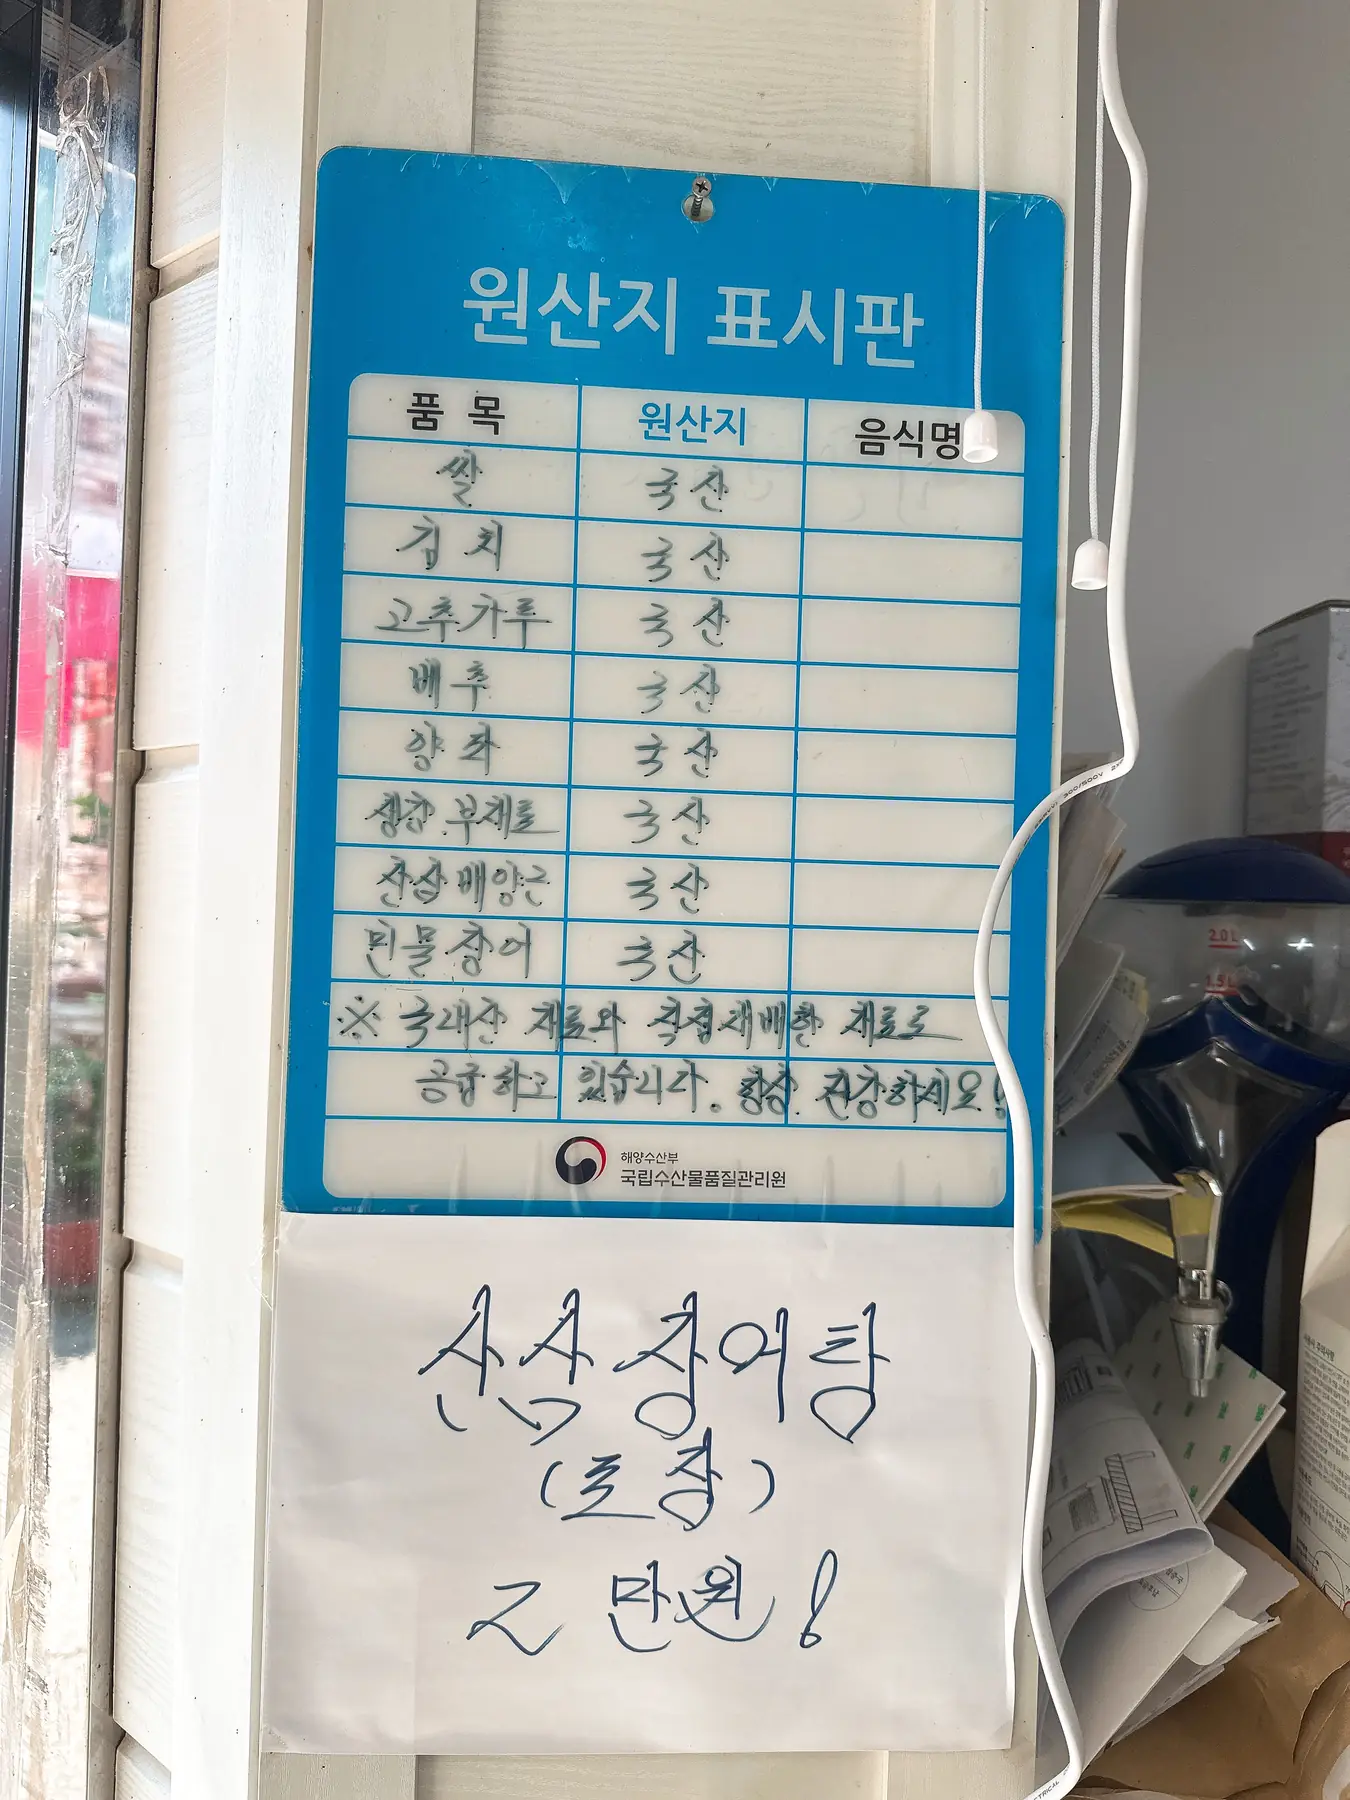 원산지 표시판
품 목 원산지 음식명
쌀 국산
김치 국산
고추가루 국산
배추 국산
양파 국산
생강.부재료 국산
산삼배양근 국산
민물장어 국산
※ 국내산 재료와 직접재배한 재료로
공급하고 있습니다. 항상 건강하세요!
해양수산부
국립수산물품질관리원
산삼장어탕
(포장)
2만원!
2.0L
1.5L
300/500V